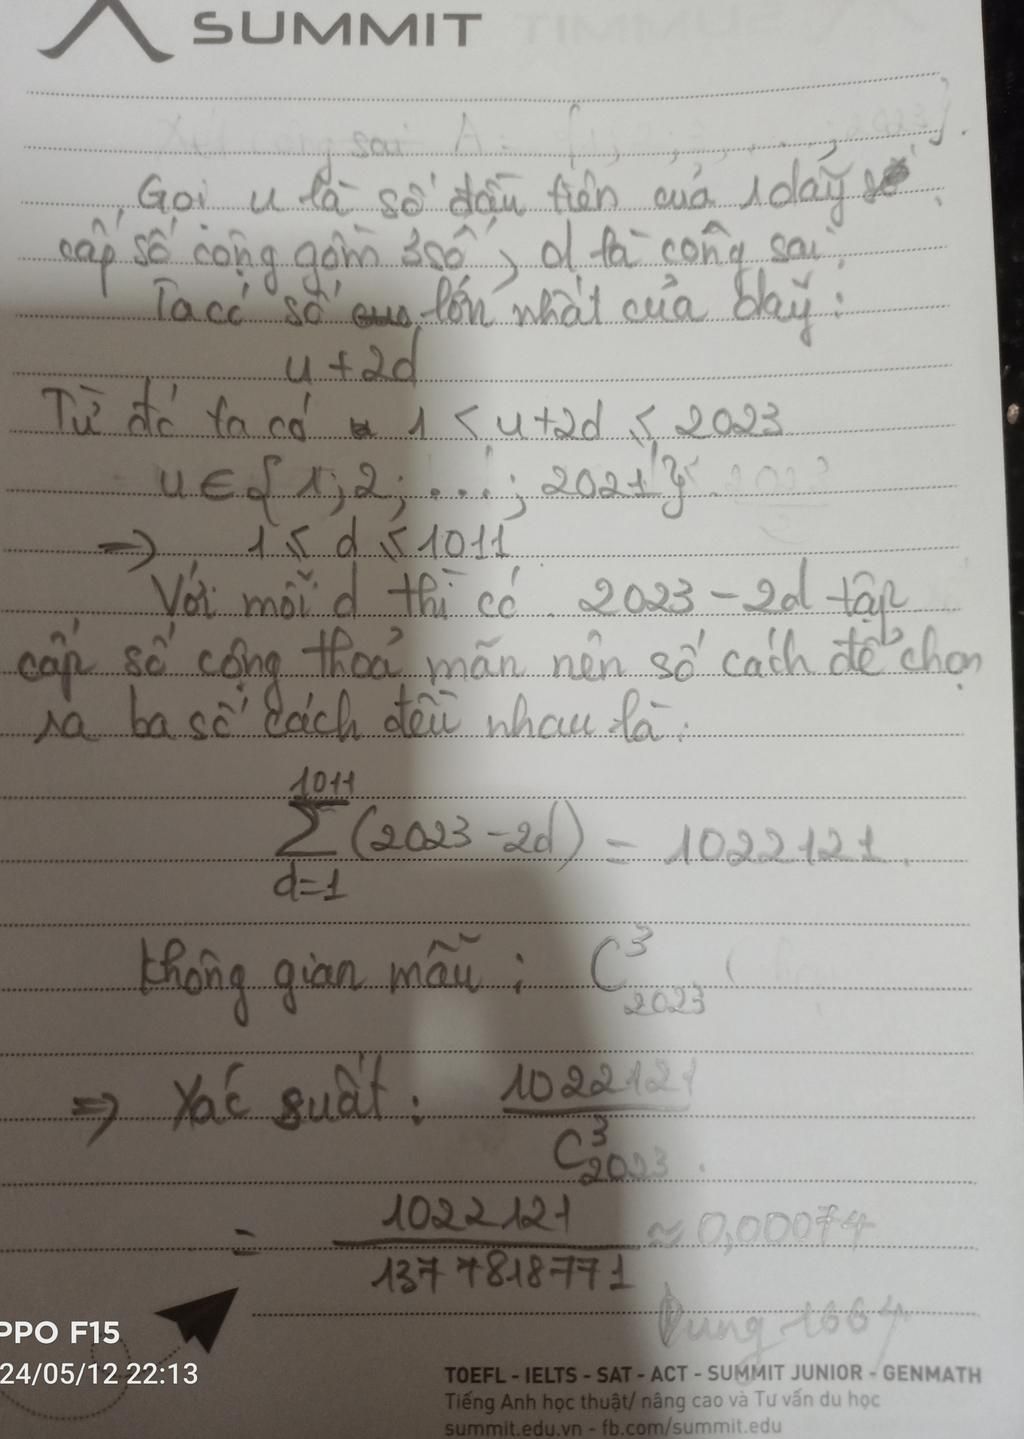 SUMMIT
Gọi u là số đầu tiên của 1 dãy
cấp số cộng gồm 3 số, d là công sai.
Ta có số lớn nhất của dãy:
u + 2d
Từ đó ta có 1 < u+2d ≤ 2023
u ∈ {1; 2; ...; 2021}
=> 1 ≤ d ≤ 1011
Với mỗi d thì có 2023 - 2d tập
cấp số cộng thoả mãn nên số cách để chọn
ra ba số cách đều nhau là:
1011
∑ (2023 - 2d) = 1022121.
d=1
Không gian mẫu: C³₂₀₂₃
=> Xác suất: 1022121
C³₂₀₂₃.
= 1022121 ≈ 0,00074
1377818771
Dung 1664
PPO F15
24/05/12 22:13
TOEFL - IELTS - SAT - ACT - SUMMIT JUNIOR - GENMATH
Tiếng Anh học thuật/ nâng cao và Tư vấn du học
summit.edu.vn - fb.com/summit.edu